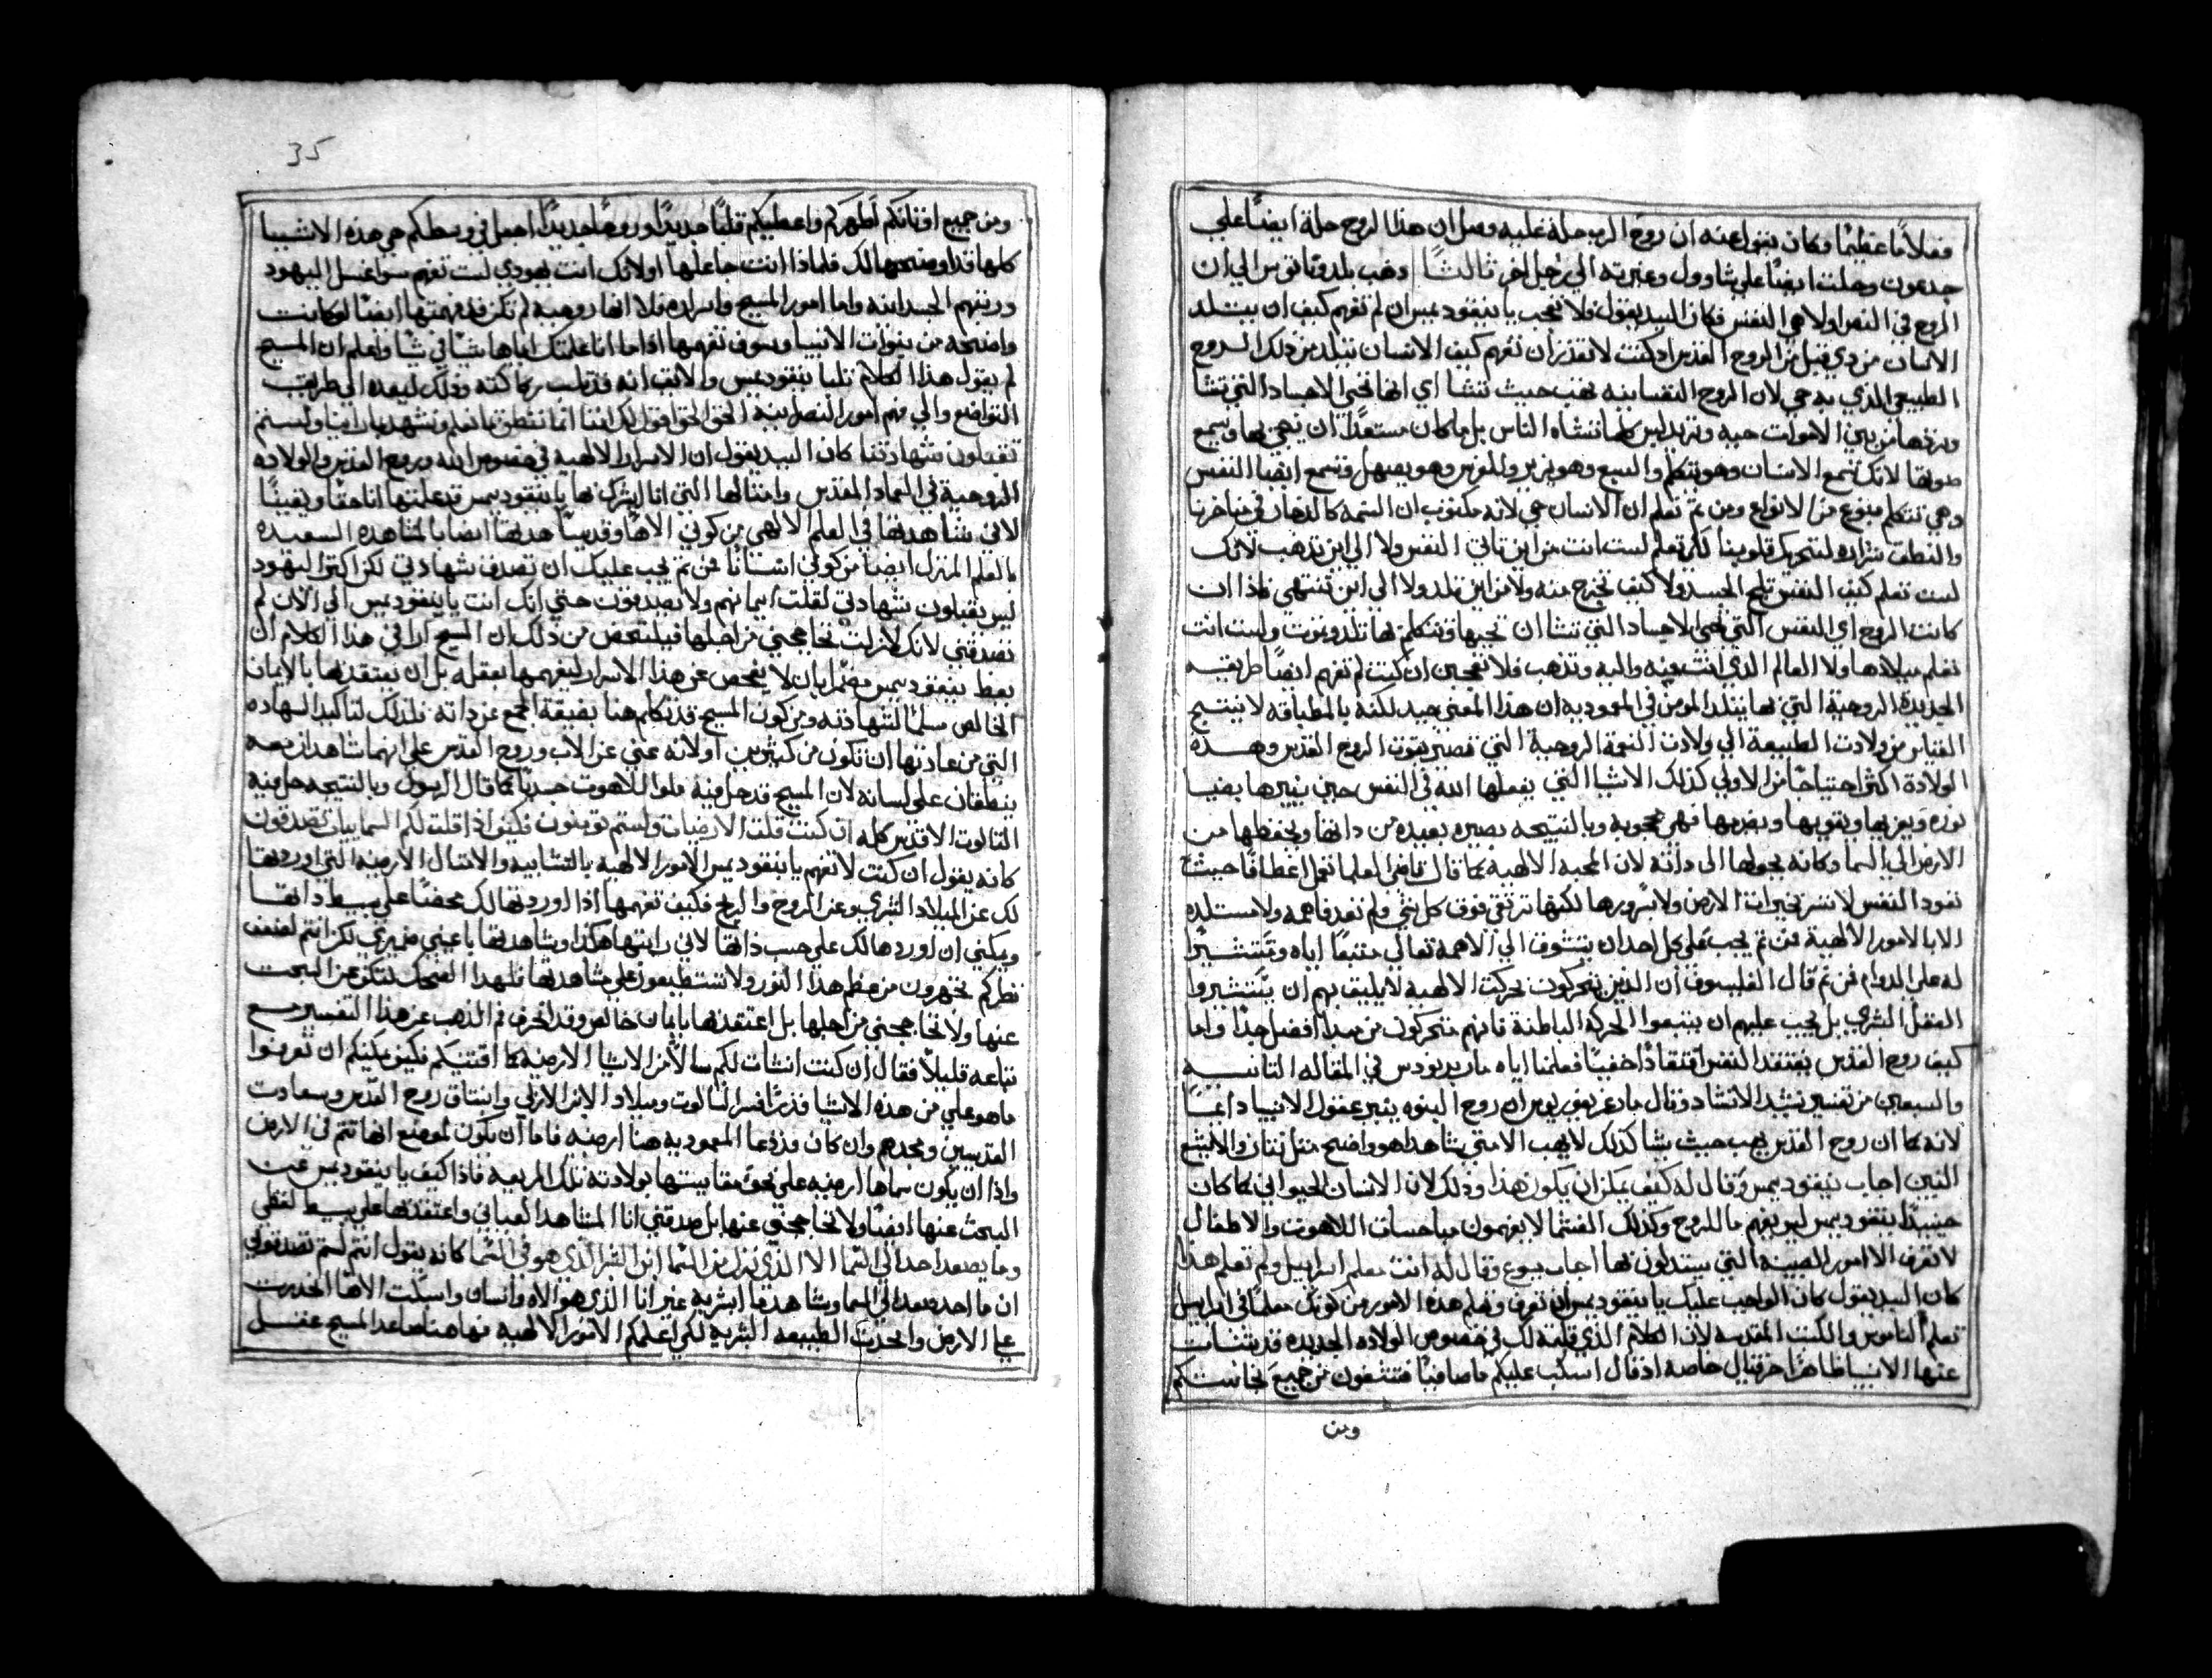 وفعلاً ما عظيمًا وكان يتنوا عنه ان روح الرب حلة عليه وقيل ان هذا الروح حلة ايضًا علي
جدعون وحلت ايضًا علي شاوول وغيرته الي رجل اخر ثالثًا
الروح في النص اولا هي النفس فكان السيد يقول فلا تعجب يا نيقوديمس ان لم تفهم كيف ان يتلد
الانسان من ذي قبل من الروح القدس اذ كنت لا تقدر ان تفهم كيف الانسان يتلد من ذلك الروح
الطبيعي الذي به حي لان الروح النفسانيه تهب حيث تشا اي انها تحيي الاجساد التي تشا
صوتها لانك تسمع الانسان وهو يتكلم والسبع وهو يزير والفرس وهو يصهل وتسمع ايضا النفس
وهي تتكلم بنوع من الانواع ومن ثم تعلم ان الانسان حي لانه مكتوب ان النسمه كالدخان في مناخرنا
والنطق شراره لتحريك قلوبنا لكن تعلم لست انت من اين تاتي النفس ولا الي اين تذهب لانك
لست تعلم كيف النفس تلج الجسد ولا كيف تخرج منه ولا من اين تلد ولا الي اين تنتهي فاذا ان
كانت الروح اي النفس التي تحيي الاجساد التي تشا ان تحييها وتتكلم بها تلد وتموت ولست انت
تعلم ميلادها ولا العالم الذي انت منه واليه وتذهب فلا تعجبن ان كنت لم تفهم ايضًا طريقه
الجديدة الروحية التي بها يتلد المومن في المعموديه ان هذا المعني جيد لكنه بالمطابقه لا ينتج
القياس من ولادت الطبيعة الي ولادت النعمة الروحية التي تصير بقوت الروح القدس وهذه
الولادة اكثر احتياجًا من الاولي كذلك الاشيا التي يفعلها الله في النفس حين ينيرها بضيا
نوره ويعزيها ويقويها ويضرمها فهي محجوبه وبالنتيجه بصيره بعيده من ذاتها ويخطفها من
الارض الي السما وكانه يحولها الي ذاته لان المحبه الالهية كما قال قاضي العلما تفعل اغطافًا حيث
تقود النفس لا تسر بخيرات الارض ولا بسرورها لكنها ترتقي فوق كل شي ولم تعد فاهمه ولا مستلذه
الا بالامور الالهية فمن ثم يجب علي كل احد ان يتشوق الي الاهه تعالي متبعًا اياه ومستشيرًا
له علي الدوام فمن ثم قال الفيلسوف ان الذين يتحركون بحركت الالهية لا يليق بهم ان يستشيروا
العقل البشري بل يجب عليهم ان يتبعوا الحركه الباطنة فانهم متحركون من مبدا افضل جدًا واما
كيف روح القدس يفتقد النفس افتقادًا خفيًا فعلمنا اياه مار برنردوس في المقاله الثانيـه
والسبعين من تفسير نشيد الانشاد وقال مار غريغوريوس ان روح النبوه ينير عقول الانبيا داعًا
لانه كما ان روح القدس يهب حيث يشا كذلك لا يهب الا متي يشا هذا هو واضح مثل ناتان واليشع
النبيين اجاب نيقوديمس وقال له كيف يمكن ان يكون هذا وذلك لان الانسان الحيواني كما كان
حينيذًا نيقوديمس ليس يفهم ما للروح وكذلك الفتنا لا يفهمون مباحسات اللاهوت والاطفال
لا تعرف الا امور الصبينه التي يستدلون بها اجاب يسوع وقال له انت معلم اسراييل ولم تعلم هذا
كان السيد يقول كان الواجب عليك يا نيقوديمس ان تعرف وتعلم هذه الامور من كونك معلمًا في اسراييل
تعلم الناموس والكتب المقدسه لان الكلام الذي قلته لك في خصوص الولاده الجديده قد تنبات
عنها الانبيا ظاهرًا حزقيال خاصة اذ قال اسكب عليكم ما صافيًا فتنقون من جميع نجاستكم
ومن
35
ومن جميع اوثانكم اطهركم واعطيكم قلبًا جديدًا وروحًا جديدًا اجعل في وسطكم هي هذه الاشيا
كلها قد اوضحتها لك فلماذا انت جاهلها اولانك انت يهودي لست تفهم سوا غسل اليهود
ورتبهم الجسدانيه واما امور المسيح واسراره فلا انها روحيه لم تكن قد فهمتها ايضًا لو كانت
واضحه من نبوات الانبيا وسوف تفهمها اذا ما انا علمتك اياها شيًا في شيًا واعلم ان المسيح
لم يقول هذا الكلام ثلبا بنيقوديمس والايق انه قد ثلب ركاكته وذلك ليعده الي طريق
التواضع والي فهم امور النصرانيه الحق الحق اقول لك اننا انما ننطق بما نعلم ونشهد بما راينا ولستم
تقبلون شهادتنا كان السيد يقول ان الاسرار الالهية في خصوص الله وروح القدس والولاده
الروحية في العماد المقدس وامثالها التي انا ابشرك بها يا نيقوديمس قد علمتها انا حقًا ويقينًا
لاني شاهدتها في العلم الالهي من كوني الاهًا وقد شاهدتها ايضا بالمشاهده السعيده
بالعلم المنزل ايضًا من كوني انسانًا فمن ثم يجب عليك ان تصدق شهادتي لكن اكثر اليهود
ليس يقبلون شهادتي لقلت ايمانهم ولا يصدقون حتي انك انت يا نيقوديمس الي الان لم
تصدقني لانك لازلت تحاججني من اجلها فيلتخص من ذلك ان المسيح اراد في هذا الكلام ان
يعظ نيقوديمس مضمرًا بان لا يفحص عن هذا الاسرار ليفهمها بعقله بل ان يعتقدها بالايمان
الخالص مسلمًا لشهادته ومن كون المسيح قد تكلم هنا بصيغة الجمع عن ذاته فلذلك لتاكيد الشهاده
التي من عادتها ان تكون من كثيرين اولانه عني عن الاب وروح القدس علي انهما شاهدان معه
ينطقان علي لسانه لان المسيح قد حل فيه ملوا اللاهوت جسديًا كما قال الرسول وبالنتيجه حل فيه
الثالوث الاقدس كله ان كنت قلت الارضيات ولستم تومنون فكيف اذا قلت لكم السماييات تصدقون
كانه يقول ان كنت لا تفهم يا نيقوديمس الامور الالهية بالتشابيه والامثال الارضيه التي اوردتها
لك عن الميلاد البشري وعن الروح والريح فكيف تفهمها اذا اوردتها لك محضًا علي بسيط ذاتها
ويمكني ان اوردها لك علي حسب ذاتها لاني رايتها هكذا وشاهدتها باعيني ضميري لكن انتم لضعف
نظركم تخهرون من عظم هذا النور ولا تستطيعون علي مشاهدتها فلهذا انصحك لتكف عن البحت
عنها ولا تحاججني من اجلها بل اعتقدها بايمان خالص وقد انحرف فم الذهب عن هذا التفسير مع
تباعه قليلاً فقال ان كنت انشات لكم سالًا من الاشيا الارضيه كما اقتنتكم فكيف يمكنكم ان تعرفوا
ما هو علي من هذه الاشيا فذرًا فسر الثالوت وميلاد الابن الازلي وانبثاق روح القدس وسعادت
القديسين ومجدهم وان كان قد دعا المعموديه هنا ارضيه فاما ان يكون لموضع انها تتم في الارض
واذا ان يكون سماها ارضيه علي نحو مقايستها بولادته تلك المريعه فاذا كيف يا نيقوديمس عن
البحث عنها ايضًا ولا تحاججني عنها بل صدقني انا المشاهد العياني واعتقدها علي بسيط لفظي
وما يصعد احد الي السما الا الذي نزل من السما ابن البشر الذي هو في السما كانه يقول انتم لستم تصدقوني
ان ما احد يصعد الي السما ويشاهدها ابشريه غير انا الذي هو الاه وانسان واسكت الاهًا انحدرت
علي الارض واتخدت الطبيعه البشريه لكي اعلمكم الامور الالهيه فها هنا صاعد المسيح عقل